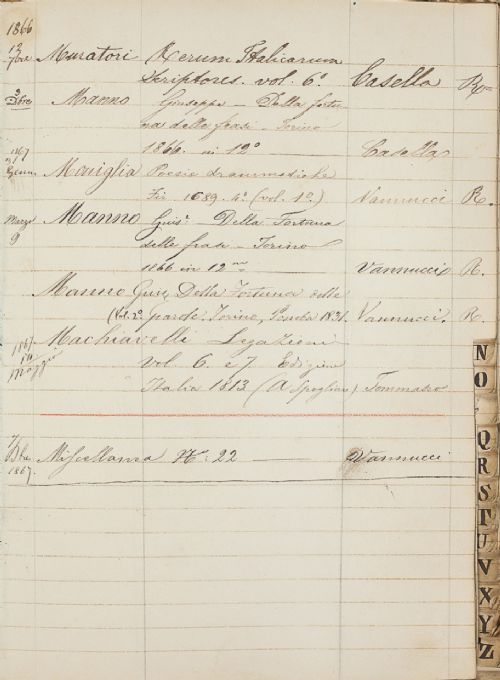 1866
12 7bre Muratori Rerum Italicarum
Scriptores. vol. 6º. Casella R.
3 Xbre Manno Giuseppe – Della fortu
na delle frasi – Torino
1866. in 12º Casella
1867 Genn. Maniglia Poesie drammatiche
Fir. 1689. 4º. (vol. 1º.) Vannucci R.
Marzo 9 Manno Gius.e Della Fortuna
delle frasi – Torino
1866 in 12mo Vannucci R.
Manno Gius. Della Fortuna delle
parole. Torino, 1831. Vannucci. R.
1867 Machiavelli Legazioni
14 Maggio vol. 6. e 7. Edizione
Italia 1813 (A Spoglian) Tommaseo
7 Xbre 1867. Miscellanea Nº. 22 Vannucci
N
O
Q
R
S
T
U
V
X
Y
Z